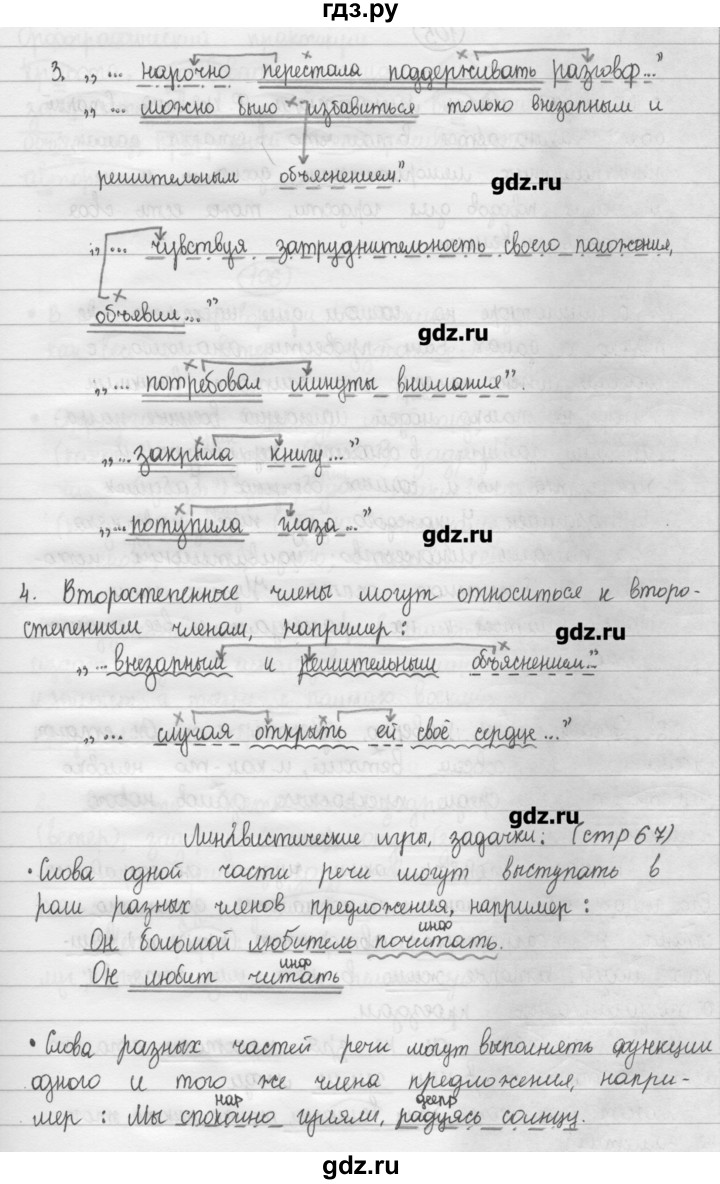 гдз.ру
3. „... нарочно перестала поддерживать разговор..."
„... можно было избавиться только внезапным и
решительным объяснением."
gdz.ru
„... чувствуя затруднительность своего положения,
объявил..."
gdz.ru
„... потребовал минуты внимания".
gdz.ru
„...закрыла книгу..."
„...потупила глаза..."
gdz.ru
4. Второстепенные члены могут относиться к второ-
степенным членам, например:
gdz.ru
„...внезапный и решительным объяснением..."
„... случая открыть ей своё сердце..."
gdz.ru
Лингвистические игры, задачки: (стр 67)
• Слова одной части речи могут выступать в
роли разных членов предложения, например:
инф
Он большой любитель почитать.
инф
Он любит читать
• Слова разных частей речи могут выполнять функции
одного и того же члена предложения, напри-
нар деепр
мер: Мы спокойно гуляли, радуясь солнцу.
gdz.ru